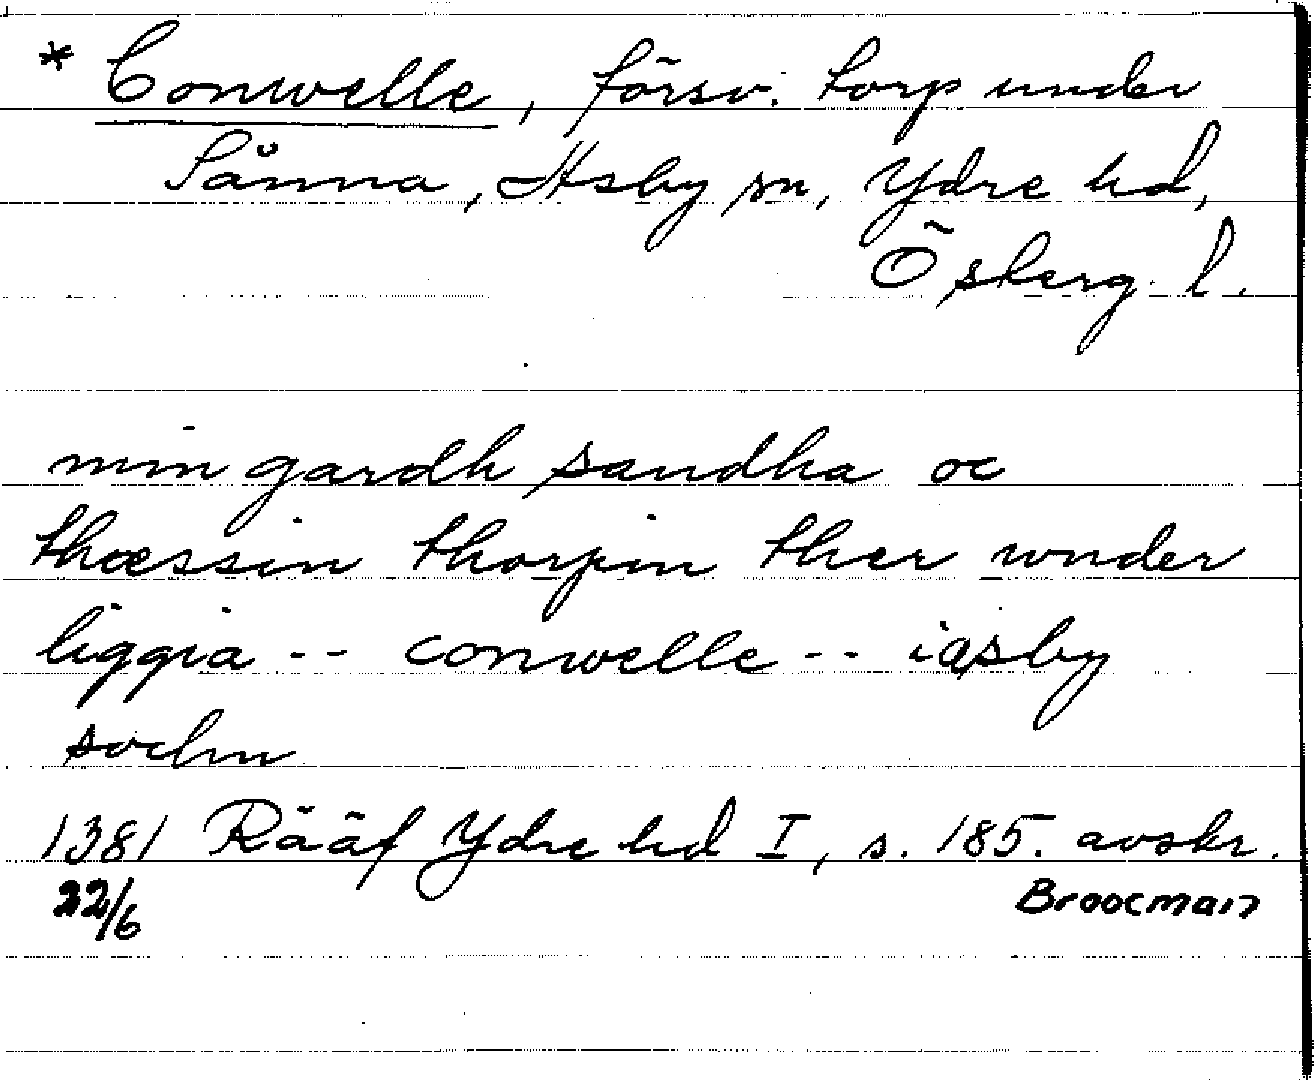 * Conwelle, försv. torp under
Sånna, Asby sn, Ydre hd,
Ö sberg. l.
min gardh sandha oc
thæssin thorpin ther wnder
liggia -- conwelle -- iasby
sochn
1381 Rääf Ydre hd I, s. 185. avskr.
22/6 Broocman